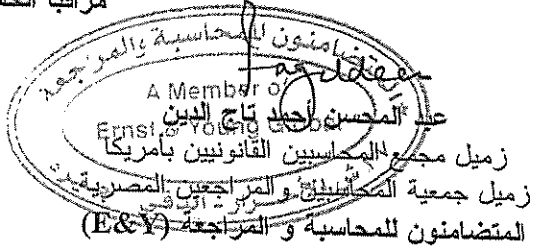 مراقبا
المتضامنون للمحاسبة والمراجعة
A Member of
Ernst & Young Global
عبد المحسن أحمد تاج الدين
زميل مجمع المحاسبين القانونيين بأمريكا
زميل جمعية المحاسبين و المراجعين المصرية
المتضامنون للمحاسبة و المراجعة (E&Y)